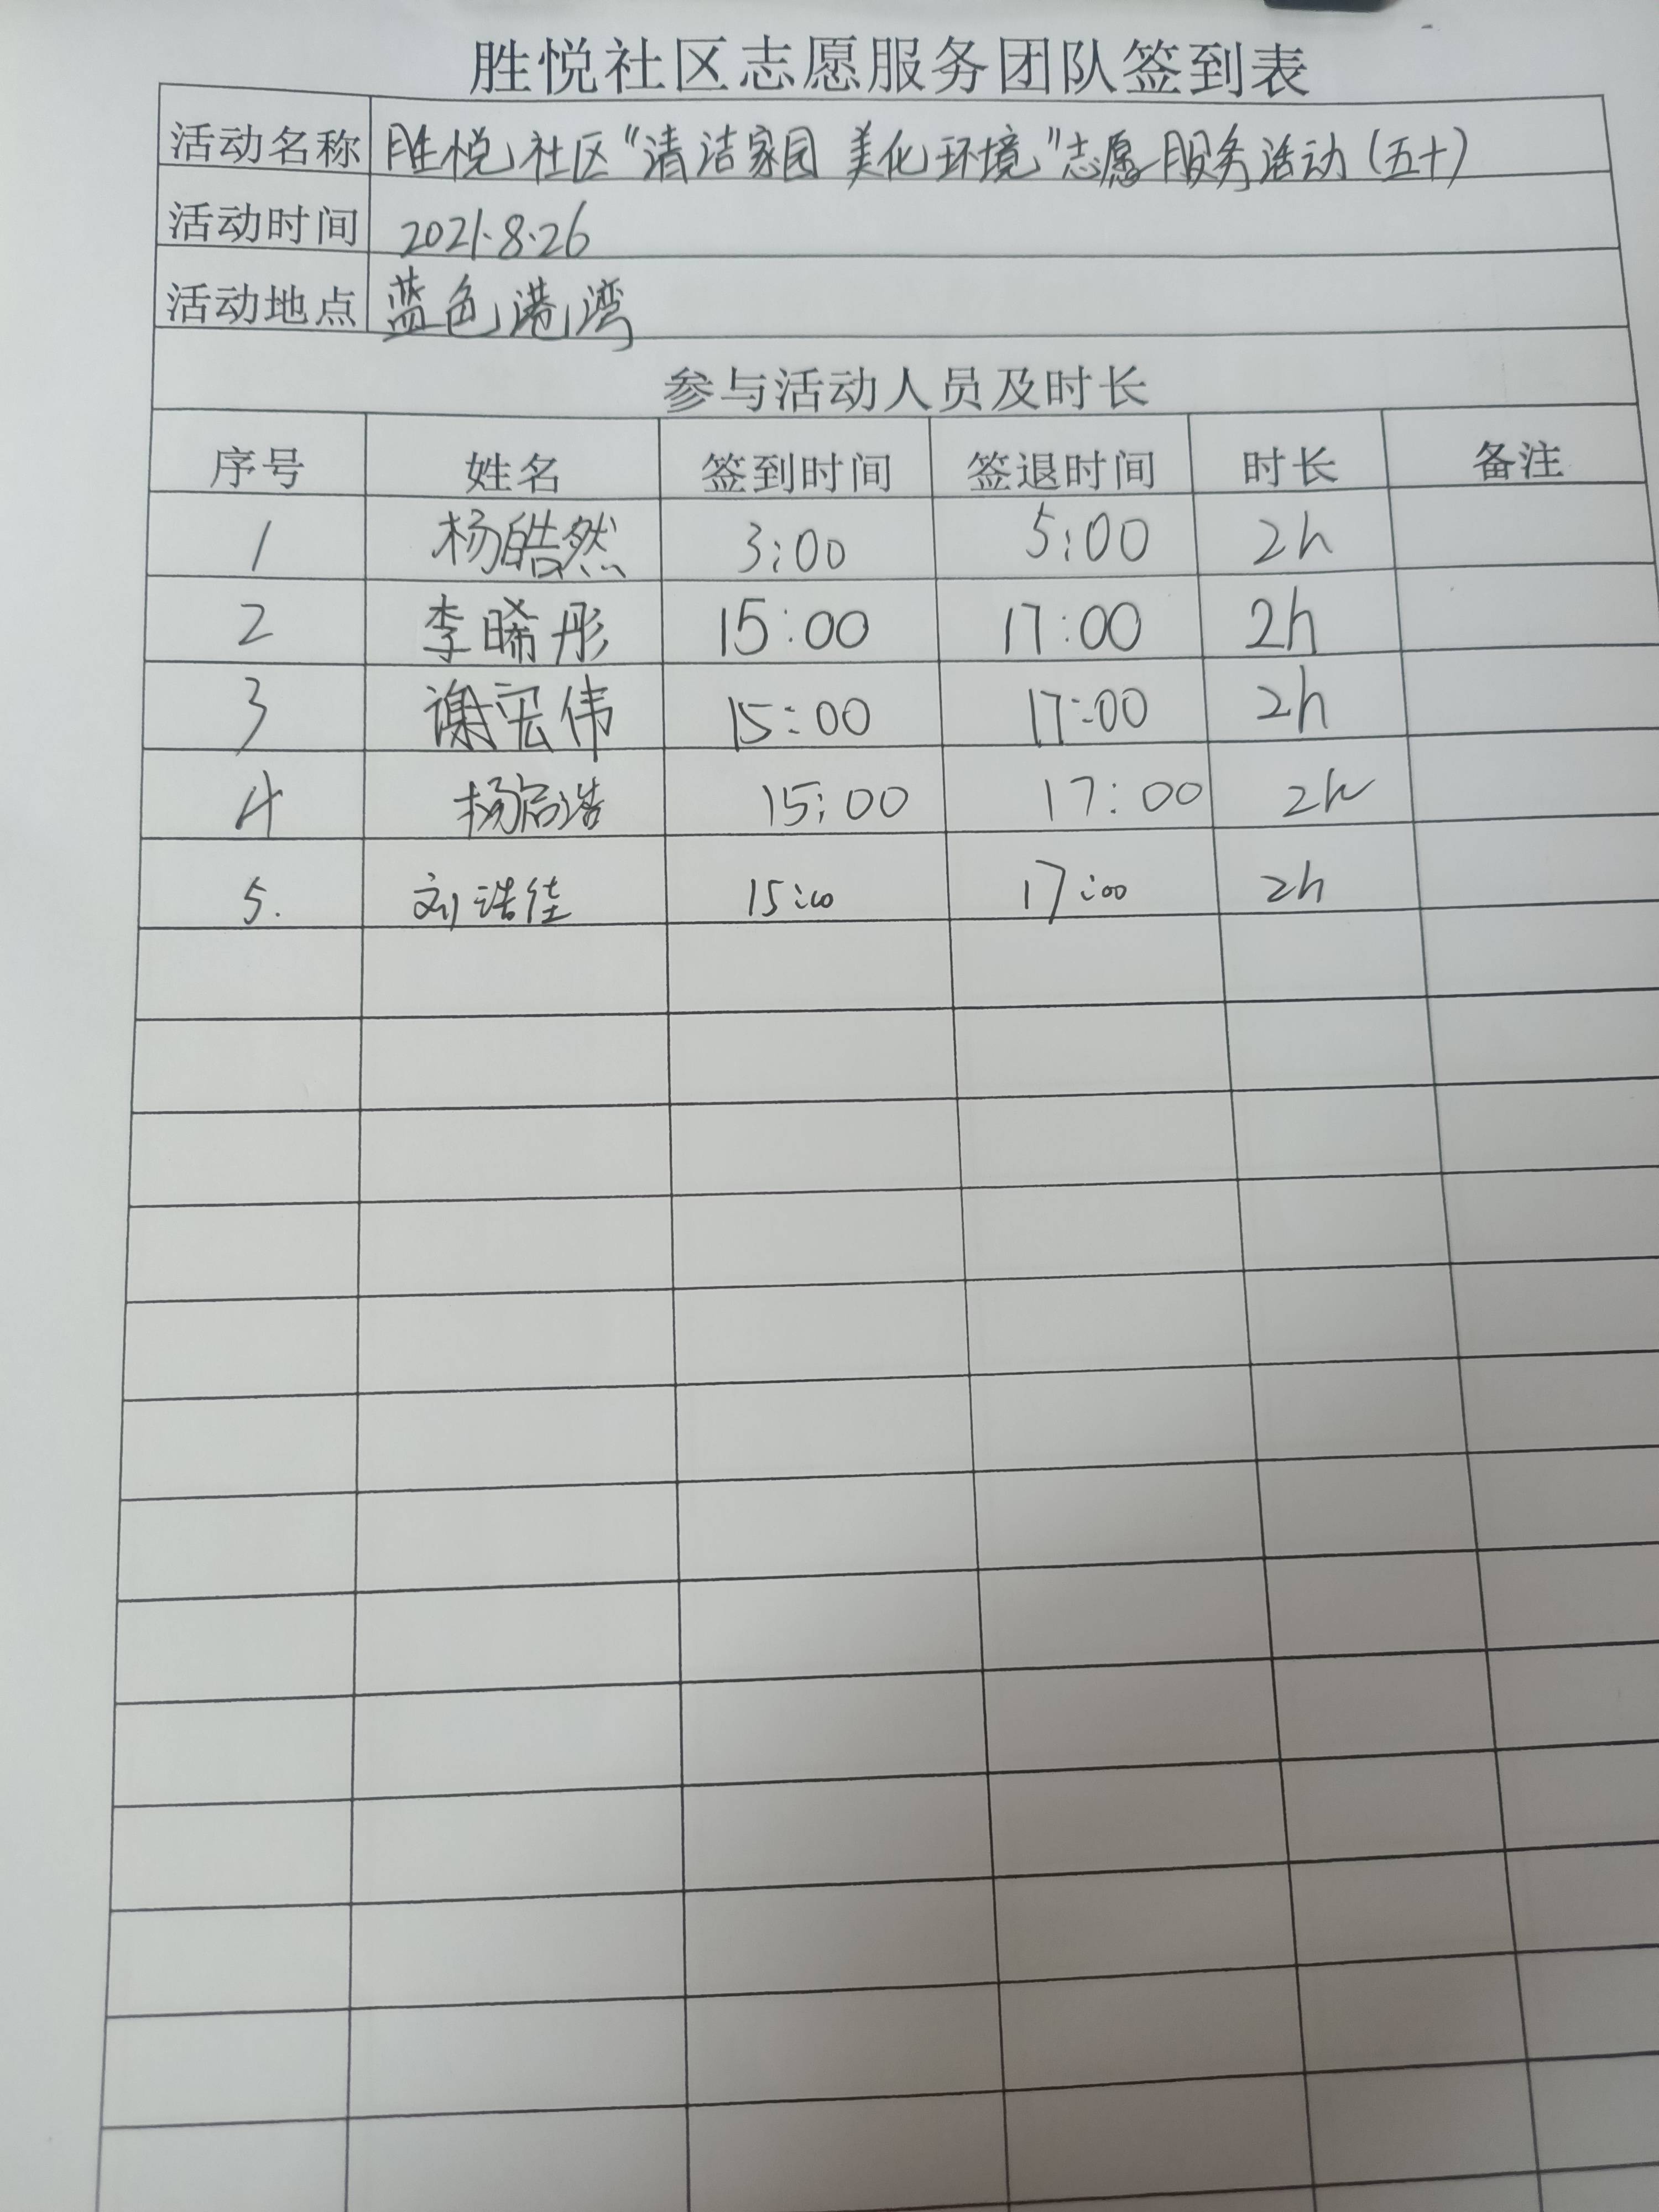 胜悦社区志愿服务团队签到表
活动名称 胜悦社区“清洁家园 美化环境”志愿服务活动(五十)
活动时间 2021.8.26
活动地点 蓝色港湾
参与活动人员及时长
序号 姓名 签到时间 签退时间 时长 备注
1 杨皓然 3:00 5:00 2h
2 李晞彤 15:00 17:00 2h
3 谢宏伟 15:00 17:00 2h
4 杨启浩 15:00 17:00 2h
5. 刘浩佳 15:00 17:00 2h